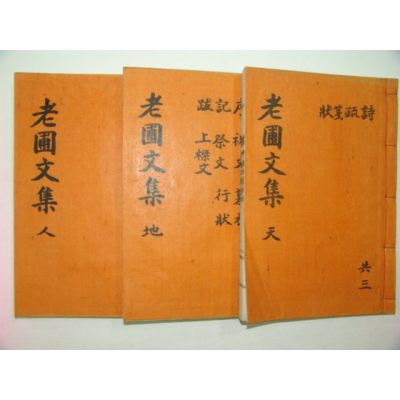 詩疏箋狀
老圃文集 天
共三
祭文 行狀
記
跋 上樑文
老圃文集 地
老圃文集 人